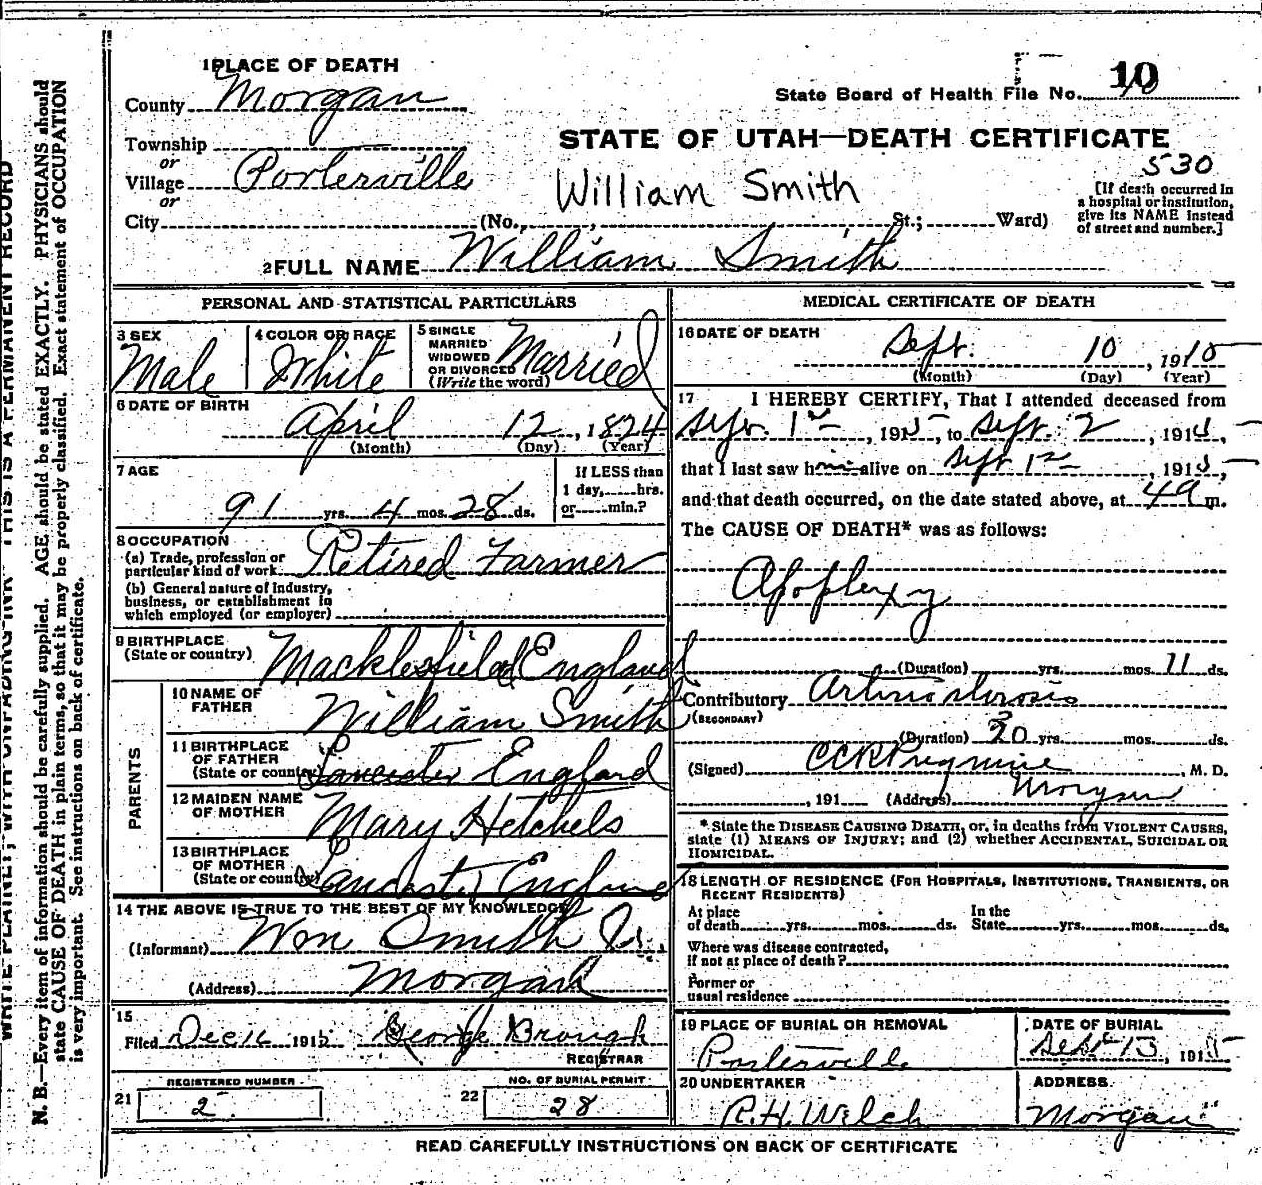 1 PLACE OF DEATH
County Morgan
Township
or
Village Porterville
or
City (No., St.; Ward)
State Board of Health File No. 10
STATE OF UTAH—DEATH CERTIFICATE
530
William Smith
[If death occurred in
a hospital or institution,
give its NAME instead
of street and number.]
2 FULL NAME William Smith
PERSONAL AND STATISTICAL PARTICULARS
3 SEX
Male
4 COLOR OR RACE
White
5 SINGLE
MARRIED
WIDOWED
OR DIVORCED
(Write the word)
Married
6 DATE OF BIRTH
April 12, 1824
(Month) (Day) (Year)
7 AGE
91 yrs. 4 mos. 28 ds.
If LESS than
1 day, hrs.
or min.?
8 OCCUPATION
(a) Trade, profession or
particular kind of work Retired Farmer
(b) General nature of industry,
business, or establishment in
which employed (or employer)
9 BIRTHPLACE
(State or country) Macklesfield England
PARENTS
10 NAME OF
FATHER William Smith
11 BIRTHPLACE
OF FATHER
(State or country) Lancester England
12 MAIDEN NAME
OF MOTHER Mary Hetchels
13 BIRTHPLACE
OF MOTHER
(State or country) Lancester England
14 THE ABOVE IS TRUE TO THE BEST OF MY KNOWLEDGE
(Informant) Wm Smith Jr.
(Address) Morgan
15
Filed Dec 16 1915 George Brough
REGISTRAR
REGISTERED NUMBER
21 2
NO. OF BURIAL PERMIT
22 28
MEDICAL CERTIFICATE OF DEATH
16 DATE OF DEATH
Sept. 10, 1915
(Month) (Day) (Year)
17 I HEREBY CERTIFY, That I attended deceased from
Sept. 1st, 1915, to Sept. 2, 1915,
that I last saw him alive on Sept 1st, 1915,
and that death occurred, on the date stated above, at 4 a m.
The CAUSE OF DEATH* was as follows:
Apoplexy
(Duration) yrs. mos. 11 ds.
Contributory
(SECONDARY)
(Duration) yrs. mos. ds.
(Signed) , M. D.
, 191 (Address) Morgan
* State the DISEASE CAUSING DEATH, or, in deaths from VIOLENT CAUSES,
state (1) MEANS OF INJURY; and (2) whether ACCIDENTAL, SUICIDAL OR
HOMICIDAL.
18 LENGTH OF RESIDENCE (FOR HOSPITALS, INSTITUTIONS, TRANSIENTS, OR
RECENT RESIDENTS)
At place
of death yrs. mos. ds.
In the
State yrs. mos. ds.
Where was disease contracted,
If not at place of death?
Former or
usual residence
19 PLACE OF BURIAL OR REMOVAL
Porterville
DATE OF BURIAL
Sept 13, 1915
20 UNDERTAKER
R.H. Welch
ADDRESS
Morgan
READ CAREFULLY INSTRUCTIONS ON BACK OF CERTIFICATE
N. B.—Every item of information should be carefully supplied. AGE should be stated EXACTLY. PHYSICIANS should
state CAUSE OF DEATH in plain terms, so that it may be properly classified. Exact statement of OCCUPATION
is very important. See instructions on back of certificate.